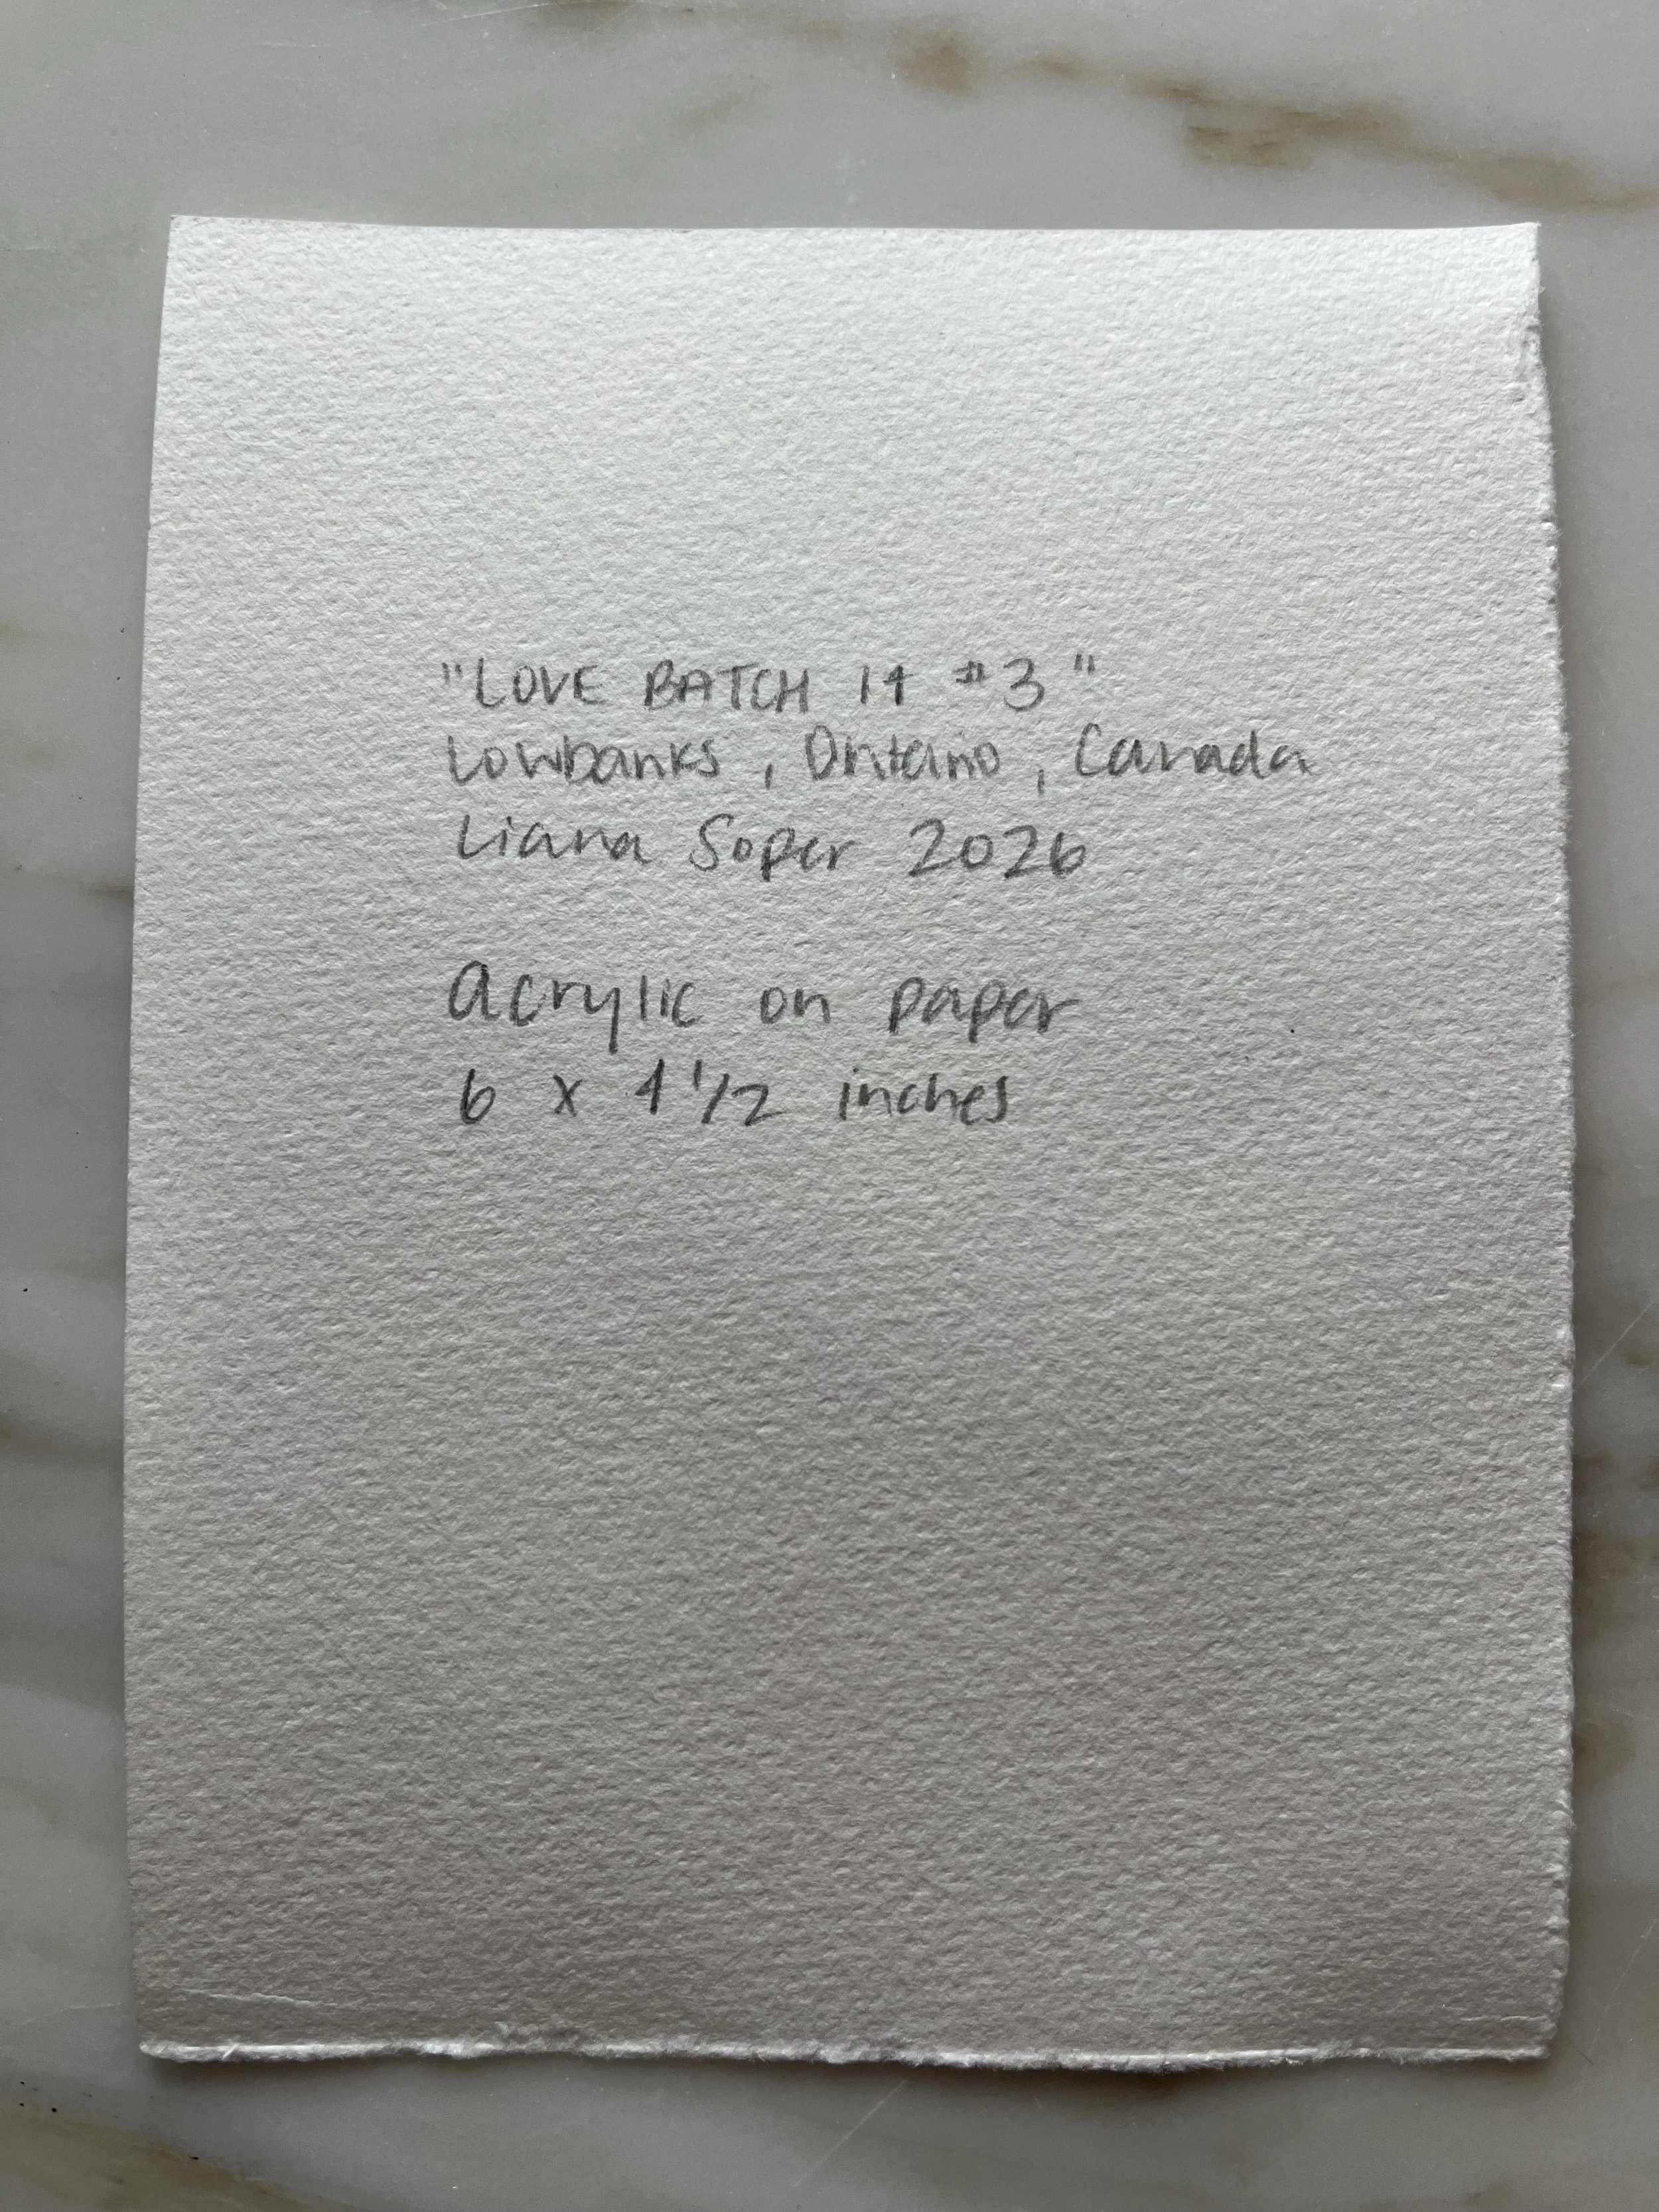 "LOVE BATCH 14 #3"
Lowbanks, Ontario, Canada
Liana Soper 2026
Acrylic on paper
6 x 4 1/2 inches